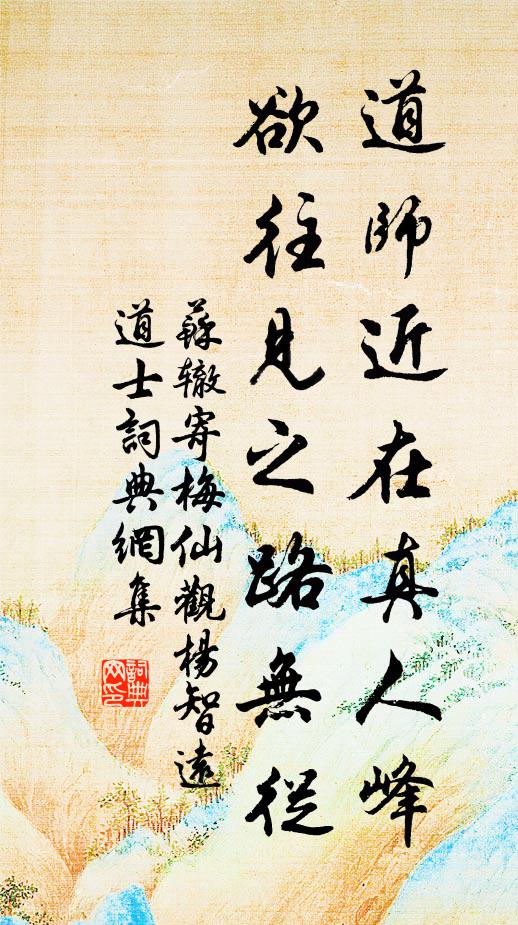 道師近在真人峰
欲往見之路無從
蘇轍寄梅仙觀楊智遠
道士詞典網集
詞典网印